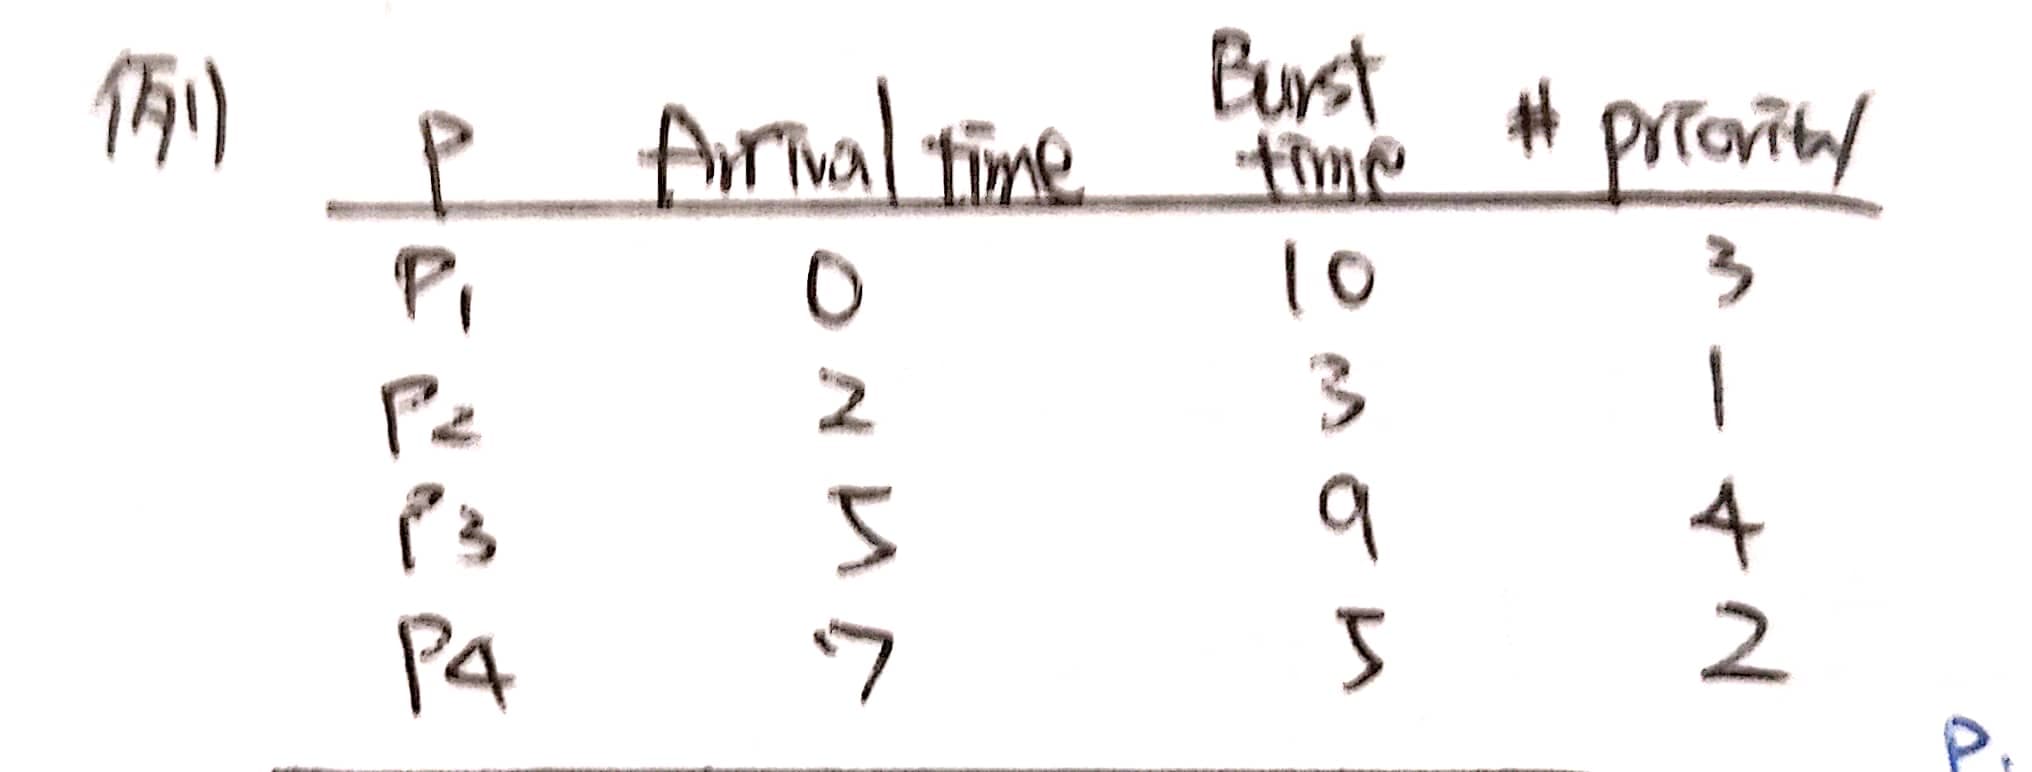 例1)
P Arrival time Burst time # priority
P1 0 10 3
P2 2 3 1
P3 5 9 4
P4 7 5 2
P